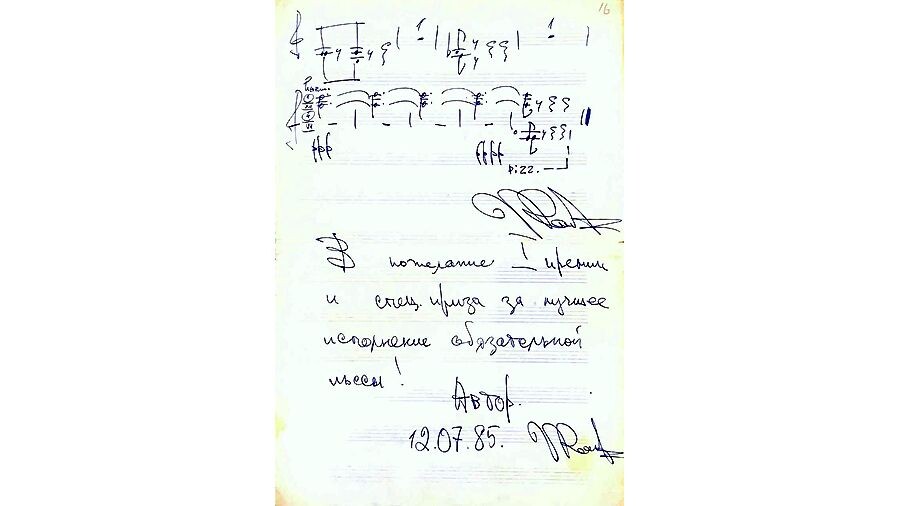 16
fff
ffff
pizz.
В пожелание I премии
и спец. приза за лучшее
исполнение обязательной
пьесы!
Автор.
12.07.85.